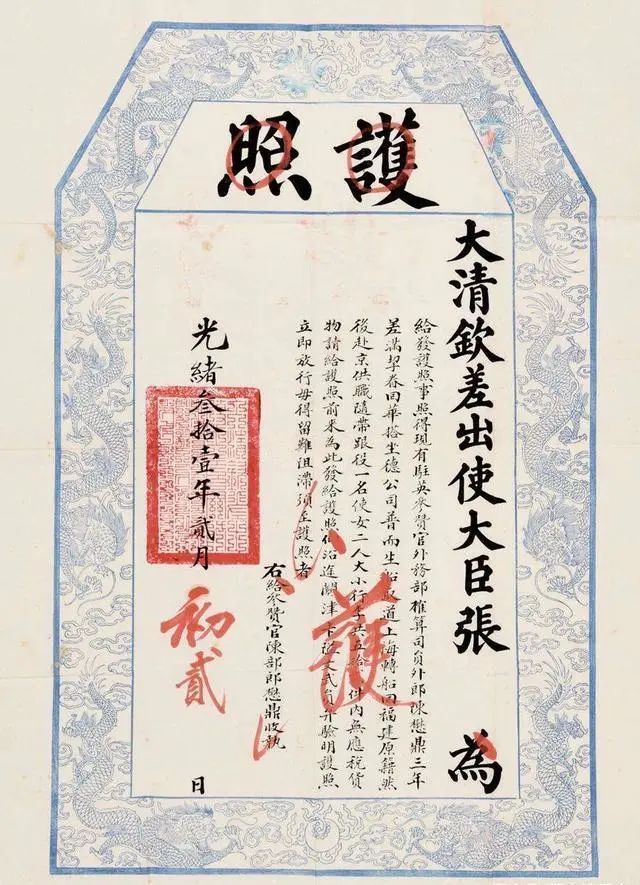 護照
大清欽差出使大臣張 為
給發護照事照得現有駐英參贊官外務部榷算司員外郎陳懋鼎三年
差滿挈眷回華搭坐德公司普而生船取道上海轉船回福建原籍然
後赴京供職隨帶跟役一名使女二人大小行李共五拾 件內無應稅貨
物請給護照前來為此發給護照俾沿途關津卡隘文武員弁驗明護照
立即放行毋得留難阻滯須至護照者
右給參贊官陳部郎懋鼎收執
光緒叁拾壹年貳月初貳日
護